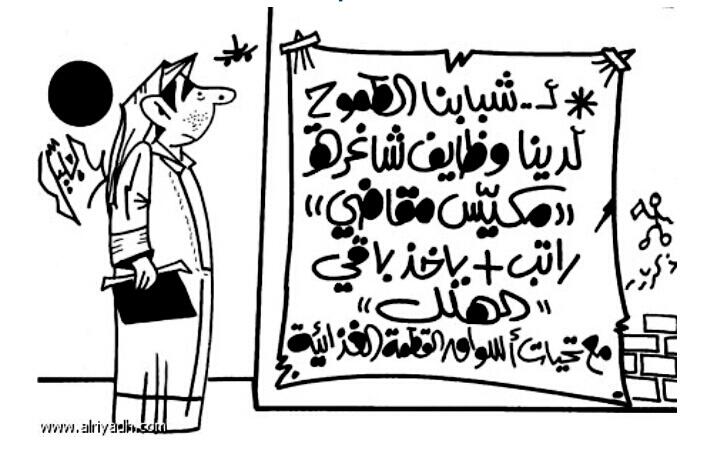 * لـ.. شبابنا الطموح
لدينا وظايف شاغرة
«مكيّس مقاضي»
راتب + ياخذ باقي
«الهلل»
مع تحيات أسواق القطمة الغذائية
www.alriyadh.com